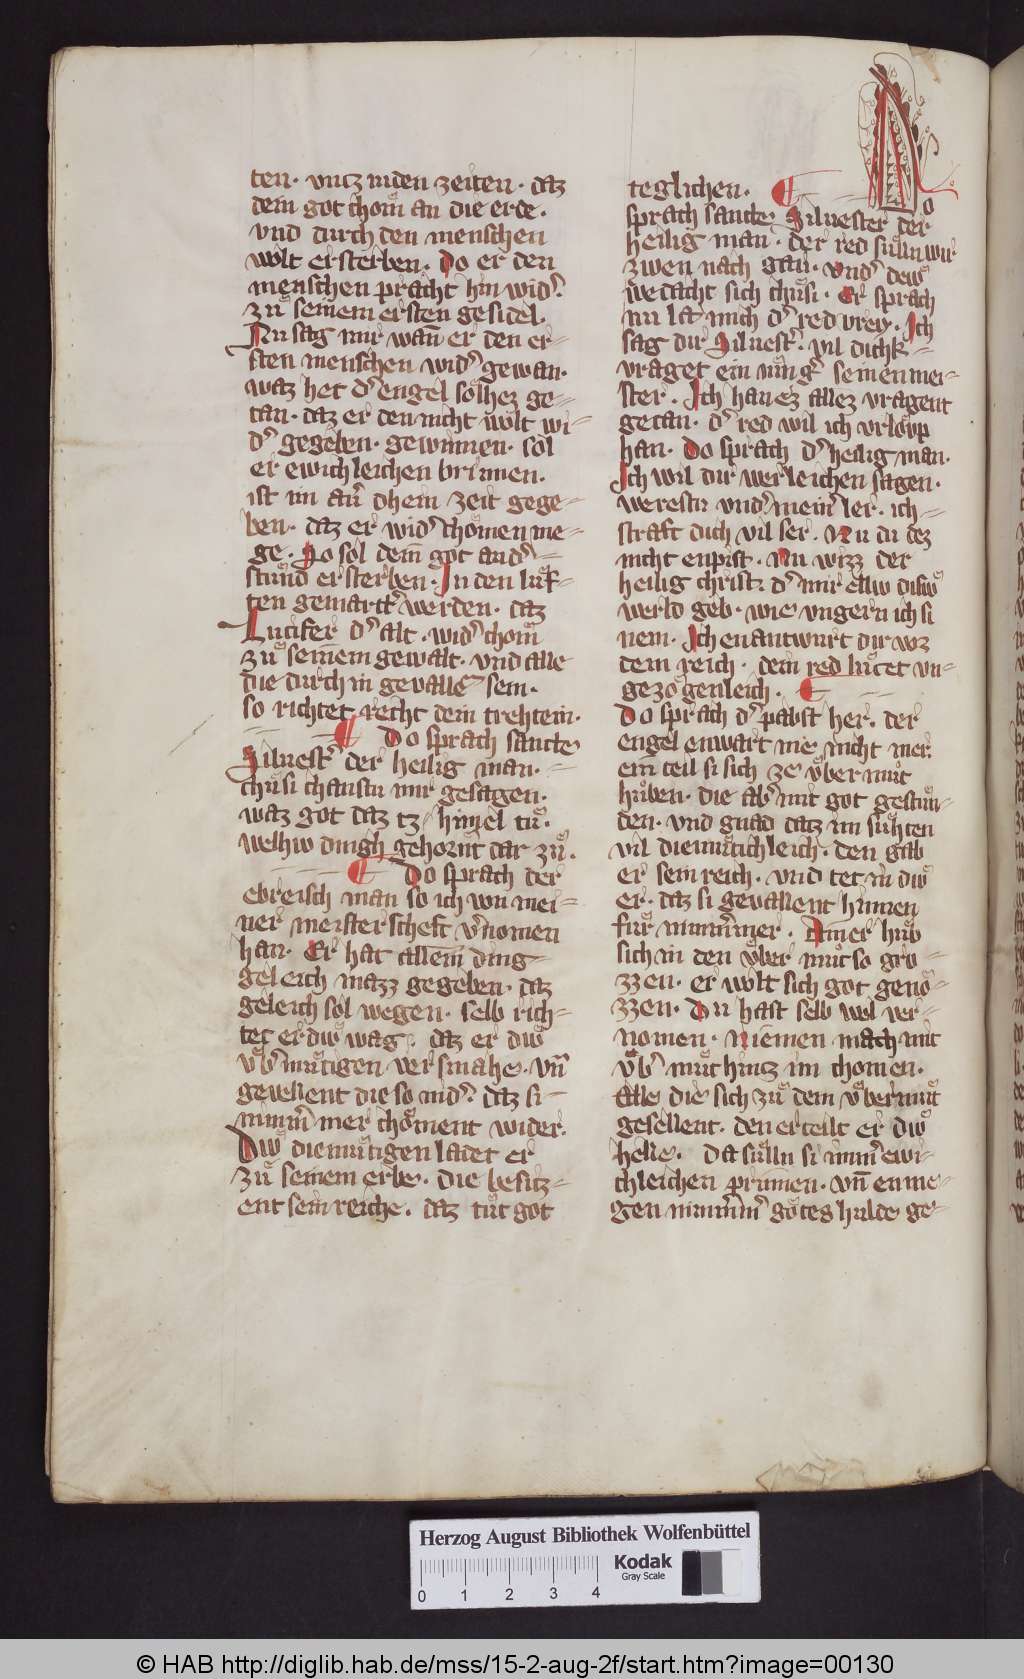 ten · vntz inden zeiten · daz
dem got chom̊ an die erde ·
vnd durch den menschen
wolt ersterben · Do er den
menschen pracht hin wid͛
zů seinem ersten gesidel ·
Nu sag mir wan̄ er den er-
sten menschen wid͛ gewan ·
waz het d͛ engel solhez ge-
tan · daz er den nicht wolt wi-
d͛ gegeben · gewinnen · sol
er ewichleichen brinnen ·
ist im au͛ dhein zeit gege-
ben · daz er wid͛ chomen me-
ge · So sol dem got and͛-
stund ersterben · In den luf-
ten gemartt͛ werden · daz
Lucifer d͛ alt · wid͛ chom̊
zů seinem gewalt · vnd alle
die durch in gevallē sein ·
so richtet recht dem trehtein ·
Do sprach sancte
Siluest͛ der heilig man ·
chůsi chanstu mir gesagen ·
waz got datz tz himel tů ·
welhiv dingh gehornt dar zů ·
Do sprach der
ebreisch man so ich von mei-
ner meisterscheft v͛nomen
han · Er hat allem ding
geleich mazz gegeben · daz
geleich sol wegen · selb rich-
tet er diẘ wag · daz er diẘ
v̊b͛ můtigen versmahe · vn̄
gevellent die so nid͛ daz si
nimm͛ mer chöment wider ·
Diẘ diemůtigen ladet er
zů seinem erbe · die besitz-
ent sein reiche · daz tůt got
teglichen ·
No
sprach sancte Siluester der
heilig man · der red sulln wir
zwen nach gan · vnd͛ deẘ
wedacht sich chůsi · Er sprach
nu la mich d͛ red vrey · Ich
sag dir Siluest͛ · vil dichk-
vraget ein iung͛ seinen mei-
ster · Ich han ez allez vragent
getan · d͛ red wil ich vrloup
han · Do sprach d͛ heilig man ·
Ich wil dir werleichen sagen ·
werestu vnd͛ mein͛ ler · ich
straft dich vil ser · Nu du dez
nicht enpist · Nu wizz der
heilig christ · d͛ mir elliv disiẘ
werld geb · wie vngern ich si
nem · Ich enantwurt dir wz
dein reich · dein red lůtet vn-
gezogenleich ·
Do sprach d͛ pabst her · der
engel enwart nie nicht mer ·
ein teil si sich ze v̊bermůt
hůben · die ab͛ mit got gestun-
den · vnd gnad datz im sůhten
vil diemůtichleich · den gab
er sein reich · vnd tet in diẘ
er · daz si gevallent hinnen
fůr nimm͛mer · Ain͛er hůb
sich in den v̊ber můt so gro-
zzen · er wolt sich got geno-
zzen · Du hast selb wol ver-
nomen · Niemen mach mit
v̊b͛ můt hintz im chomen ·
Alle die sich zů dem v̊bermůt
gesellent · den erteilt er diẘ
helle · da sůlln si imm͛ ewi-
chleichen prinnen · vn̄ en me-
gen nimm͛m͛ gotes hulde ge-
Herzog August Bibliothek Wolfenbüttel
Kodak
Gray Scale
0 1 2 3 4
© HAB http://diglib.hab.de/mss/15-2-aug-2f/start.htm?image=00130